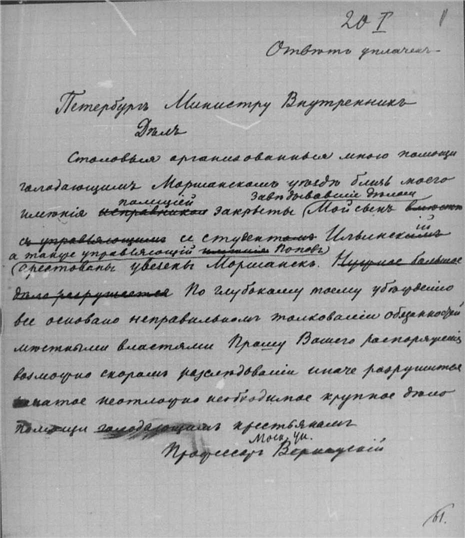 20 I
Отвѣтъ уплаченъ
Петербургъ Министру Внутреннихъ
Дѣлъ
Столовыя организованныя мною помощи
голодающимъ Моршанскомъ уѣздѣ близь моего
полиціей завѣдывавшіе дѣломъ
имѣнія исправникомъ закрыты (Мой сынъ
съ управляющимъ со студентомъ Ильинскимъ ій
а также управляющій имѣнія Поповъ)
(арестованы увезены Моршанскъ. Нужное большое
дѣло разрушается По глубокому моему убѣжденію
все основано неправильномъ толкованіи обязанностей
мѣстными властями Прошу Вашего распоряженія
возможно скоромъ разслѣдованіи иначе разрушится
начатое неотложно необходимое крупное дѣло
помощи голодающимъ крестьянамъ
Моск. ун.
Профессоръ Вернадскій